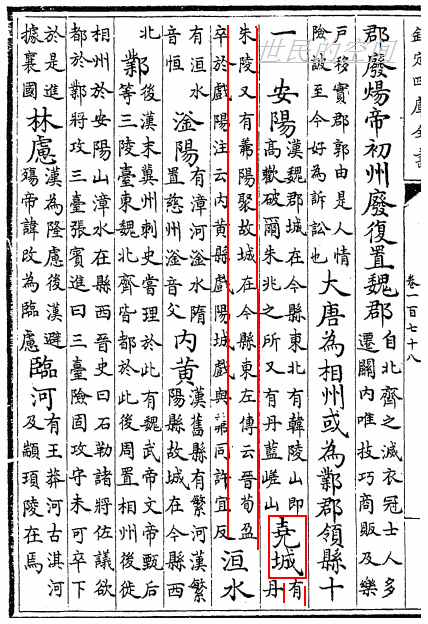 欽定四庫全書
卷一百七十八
郡廢煬帝初州廢復置魏郡自北齊之滅衣冠士人多
遷關內唯技巧商販及樂
戶移實郡郭由是人情
險詖至今好為訴訟也大唐為相州或為鄴郡領縣十
一 安陽漢魏郡城在今縣東北有韓陵山即
高歡破爾朱兆之所又有丹藍嵯山堯城有
丹
朱陵又有羛陽聚故城在今縣東左傳云晉荀盈
卒於戲陽注云內黃縣戲陽城戲與羛同許宜反洹水
有洹水
音恒滏陽有漳河滏水隋
置慈州滏音父內黃漢舊縣有繁河漢繁
陽縣故城在今縣西
北 鄴後漢末冀州刺史嘗理於此有魏武帝文帝甄后
等三陵臺東魏北齊皆都於此後周置相州後徙
相州於安陽山漳水在縣西晉史曰石勒諸將佐議欲
都於鄴將攻三臺張賓進曰三臺險固攻守未可卒下
於是進
據襄國林慮漢為隆慮後漢避
殤帝諱改為臨慮臨河有王莽河古淇河
及顓頊陵在焉
世民的空间